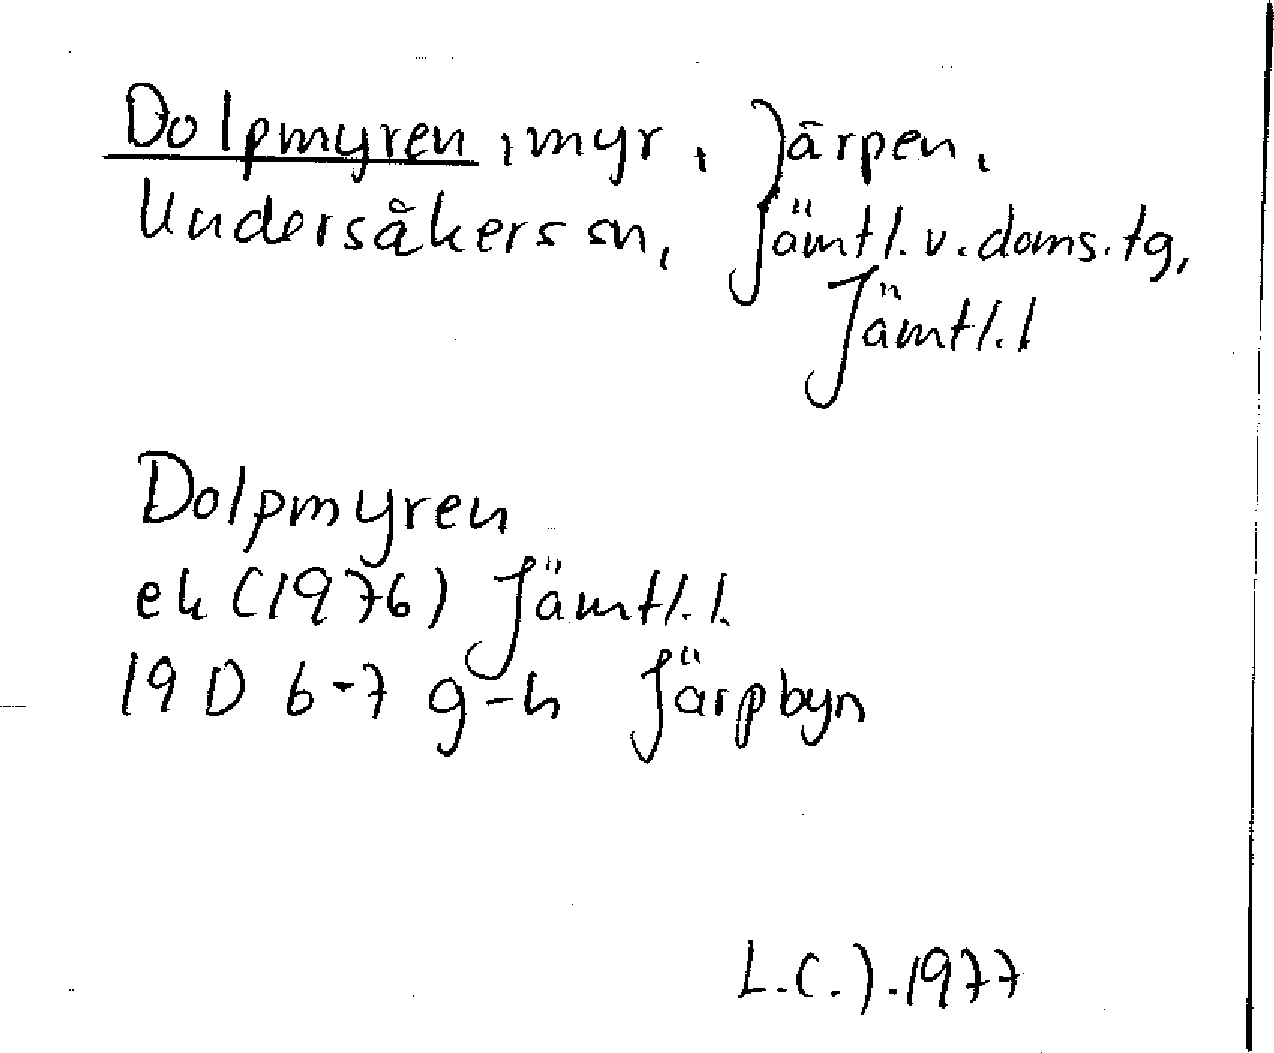 Dolpmyren, myr, Järpen,
Undersåkers sn, Jämtl. v. doms. tg,
Jämtl. l
Dolpmyren
ek (1976) Jämtl. l.
19 D 6-7 g-h Järpbyn
L.C.J. 1977